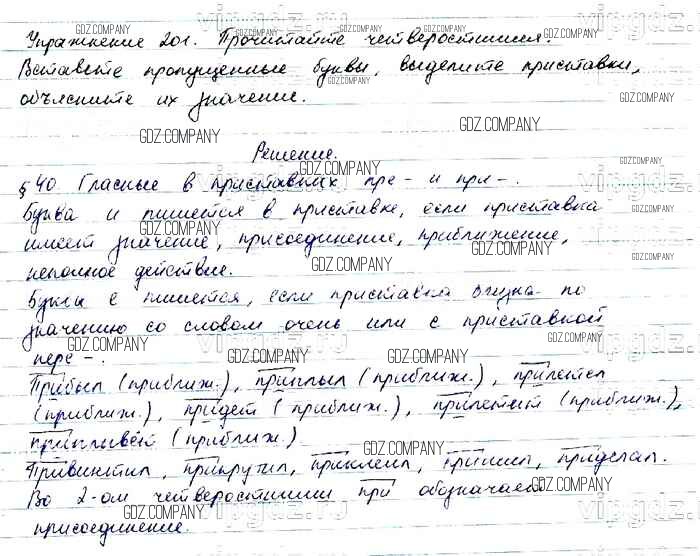 Упражнение 201. Прочитайте четверостишия.
Вставьте пропущенные буквы, выделите приставки,
объясните их значение.
Решение.
§ 40. Гласные в приставках пре- и при-.
Буква и пишется в приставке, если приставка
имеет значение, присоединение, приближение,
неполное действие.
Буквы е пишется, если приставка близка по
значению со словом очень или с приставкой
пере-.
Прибыл (приближ.), приплыл (приближ.), прилетел
(приближ.), придет (приближ.), прилетит (приближ.),
приплывёт (приближ.)
Привинтил, прикрутил, приклеил, пришил, приделал.
Во 2-ом четверостишии при обозначает
присоединение.
GDZ.COMPANY
vipgdz.ru